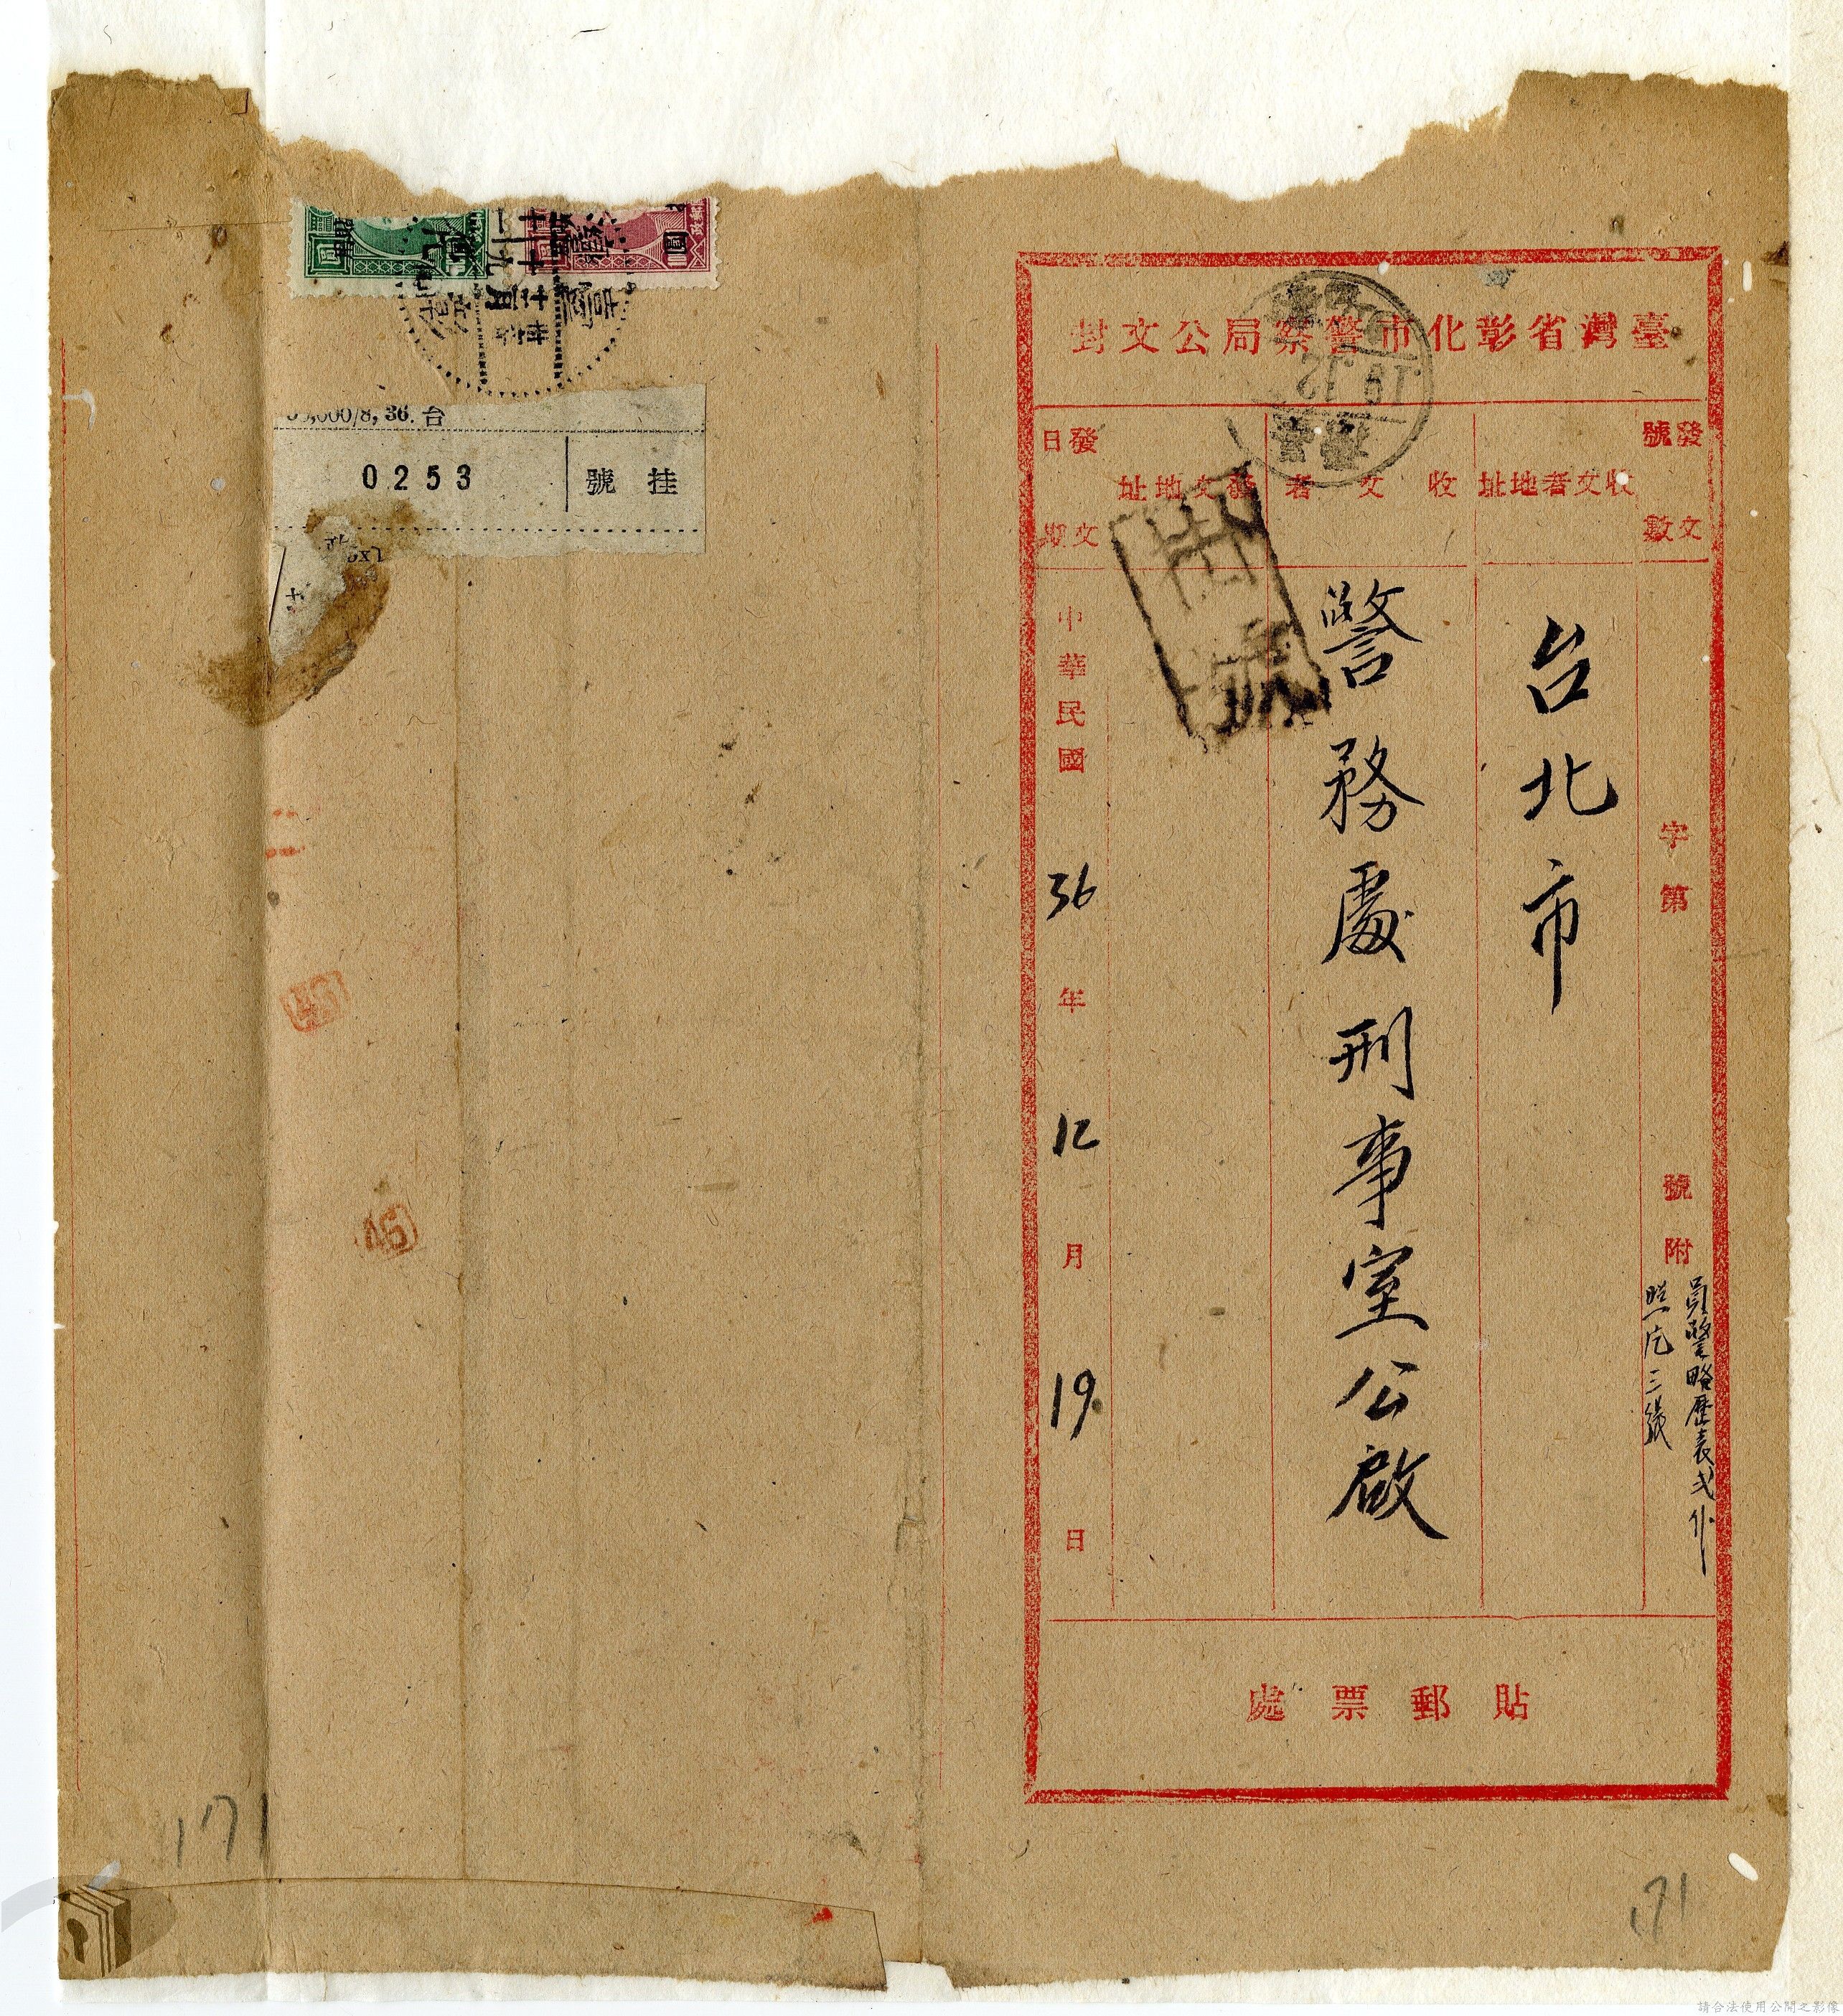 臺灣省彰化市警察局公文封
發文號數
收文者地址
收文者
發文地址
發文日期
字第 號附
員警略歷表弍件
照片三張
台北市
警務處刑事室公啟
中華民國36年12月19日
貼郵票處
掛號
19.12
36.台
掛號 0253
46
171
171
請合法使用公開之影像